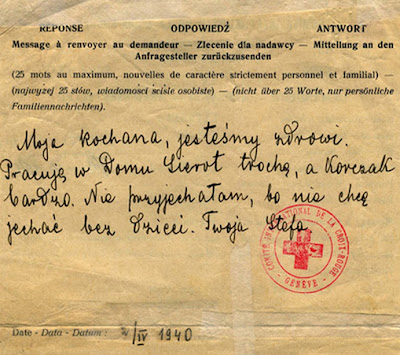 RÉPONSE ODPOWIEDŹ ANTWORT
Message à renvoyer au demandeur — Zlecenie dla nadawcy — Mitteilung an den
Anfragesteller zurückzusenden
(25 mots au maximum, nouvelles de caractère strictement personnel et familial) —
(najwyżej 25 stów, wiadomości ściśle osobiste) — (nicht über 25 Worte, nur persönliche
Familiennachrichten).
Moja kochana, jesteśmy zdrowi.
Pracuję w Domu Sierot trochę, a Korczak
bardzo. Nie przyjechałam, bo nie chcę
jechać bez dzieci. Twoja Stefa
COMITÉ INTERNATIONAL DE LA CROIX-ROUGE
GENÈVE
Date - Data - Datum : /IV 1940